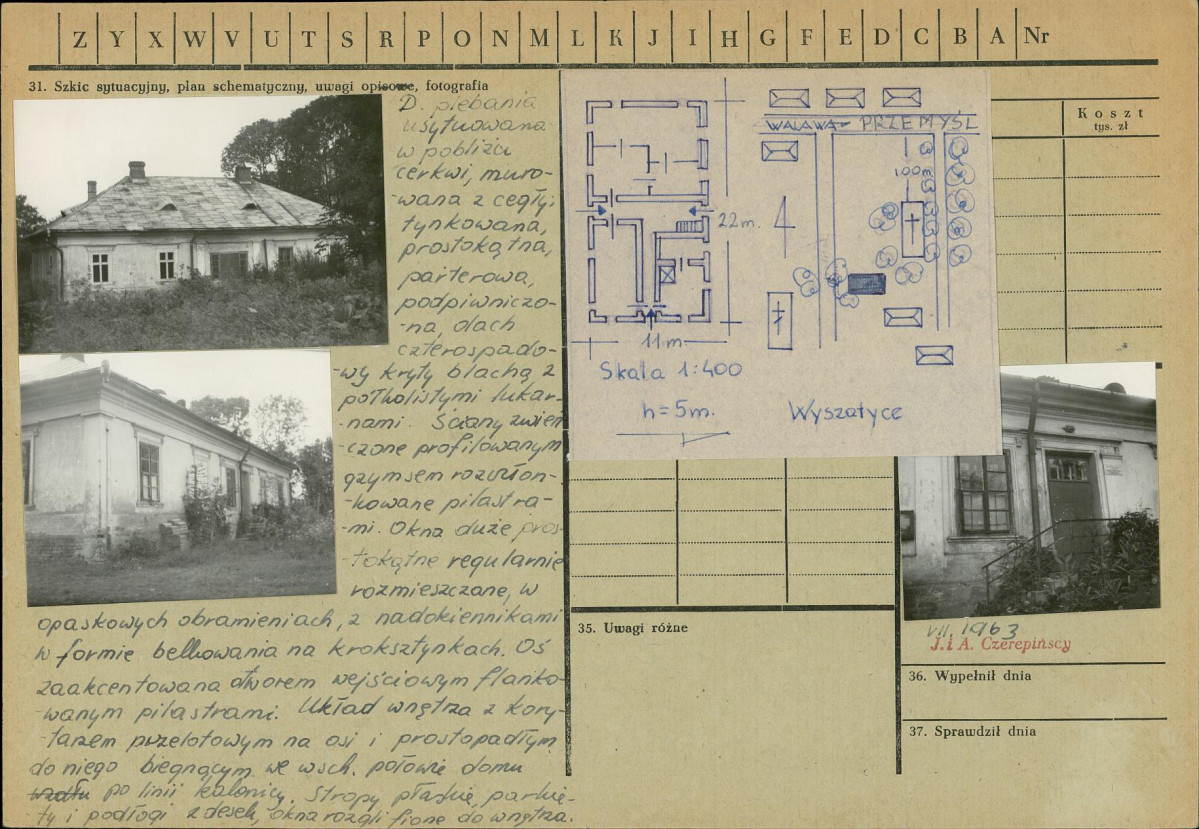 Z Y X W V U T S R P O N M L K J I H G F E D C B A Nr
31. Szkic sytuacyjny, plan schematyczny, uwagi opisowe, fotografia
D. plebania
usytuowana
w pobliżu
cerkwi, muro-
-wana z cegły,
tynkowana,
prostokątna,
parterowa,
podpiwniczo-
-na, dach
czterospado-
-wy kryty blachą z
półkolistymi lukar-
-nami. Ściany zwień
-czone profilowanym
gzymsem rozczłon-
-kowane pilastra-
-mi. Okna duże pros-
-tokątne regularnie
rozmieszczone, w
opaskowych obramieniach, z nadokiennikami
w formie belkowania na kroksztynkach. Oś
zaakcentowana otworem wejściowym flanko-
-wanym pilastrami. Układ wnętrza z kory-
-tarzem przelotowym na osi i prostopadłym
do niego biegnącym we wsch. połowie domu
wzdłu po linii kalenicy. Stropy płaskie, parkie-
-ty i podłogi z desek, okna rozgli fione do wnętrza.
22m.
11m
Skala 1:400
h=5m.
WALAWA- PRZEMYŚL
100m
Wyszatyce
Koszt
tys. zł
35. Uwagi różne
VII. 1963
J. i A. Czerepińscy
36. Wypełnił dnia
37. Sprawdził dnia